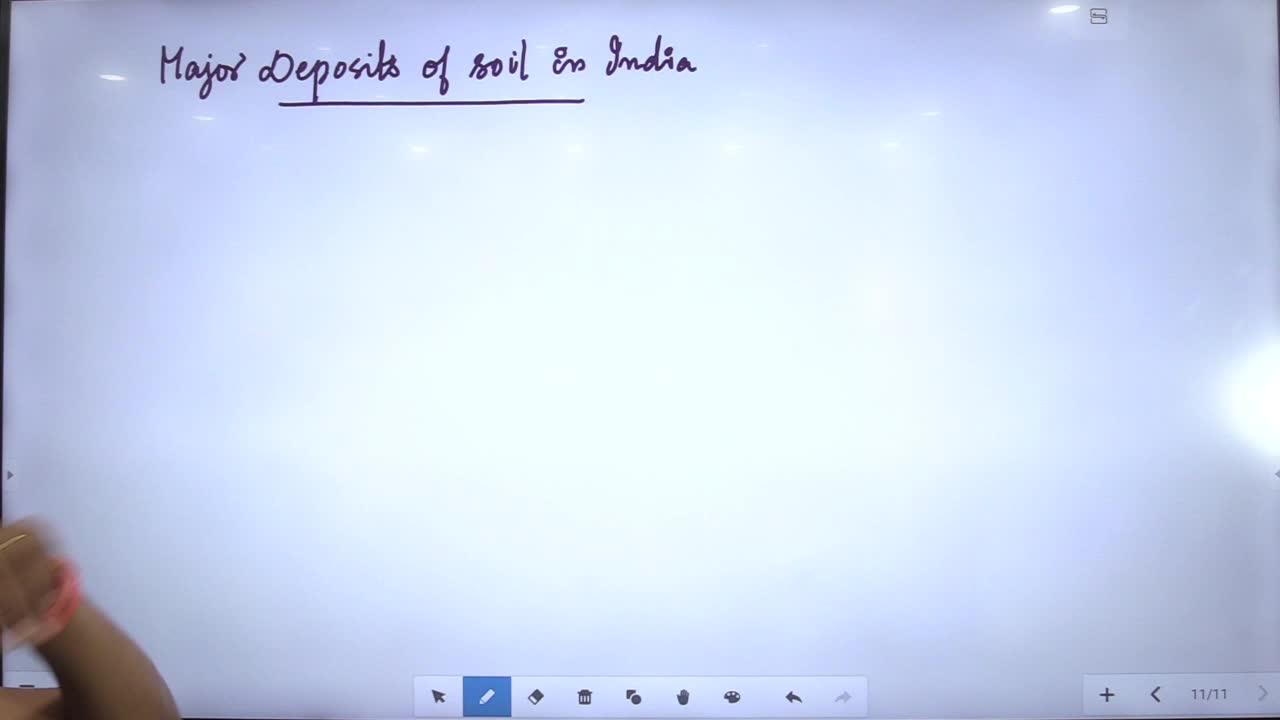 Major Deposits of soil in India
11/11